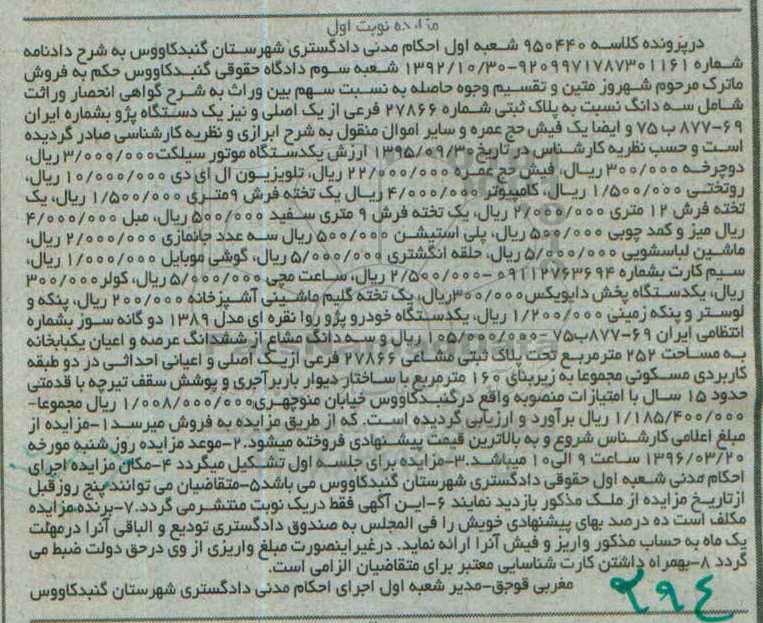 مزایده نوبت اول
درپرونده کلاسه ۹۵۰۴۴۰ شعبه اول احکام مدنی دادگستری شهرستان گنبدکاووس به شرح دادنامه
شماره ۹۲۰۹۹۷۱۷۸۷۳۰۱۱۶۱-۱۳۹۲/۱۰/۳۰ شعبه سوم دادگاه حقوقی گنبدکاووس حکم به فروش
ماترک مرحوم شهروز متین و تقسیم وجوه حاصله به نسبت سهم بین وراث به شرح گواهی انحصار وراثت
شامل سه دانگ نسبت به پلاک ثبتی شماره ۲۷۸۶۶ فرعی از یک اصلی و نیز یک دستگاه پژو بشماره ایران
۶۹-۸۷۷ ب ۷۵ و ایضا یک فیش حج عمره و سایر اموال منقول به شرح ابرازی و نظریه کارشناسی صادر گردیده
است و حسب نظریه کارشناس در تاریخ ۱۳۹۵/۰۹/۳۰ ارزش یکدستگاه موتور سیلکت ۳/۰۰۰/۰۰۰ ریال،
دوچرخه ۳۰۰/۰۰۰ ریال، فیش حج عمره ۲۲/۰۰۰/۰۰۰ ریال، تلویزیون ال ای دی ۱۰/۰۰۰/۰۰۰ ریال،
روتختی ۱/۵۰۰/۰۰۰ ریال، کامپیوتر ۴/۰۰۰/۰۰۰ ریال یک تخته فرش ۹متری ۱/۵۰۰/۰۰۰ ریال، یک
تخته فرش ۱۲ متری ۲/۰۰۰/۰۰۰ ریال، یک تخته فرش ۹ متری سفید ۵۰۰/۰۰۰ ریال، مبل ۴/۰۰۰/۰۰۰
ریال میز و کمد چوبی ۵۰۰/۰۰۰ ریال، پلی استیشن ۵۰۰/۰۰۰ ریال سه عدد جانمازی ۲/۰۰۰/۰۰۰ ریال،
ماشین لباسشویی ۵/۰۰۰/۰۰۰ ریال، حلقه انگشتری ۵/۰۰۰/۰۰۰ ریال، گوشی موبایل ۱/۰۰۰/۰۰۰ ریال،
سیم کارت بشماره ۰۹۱۱۲۷۶۳۶۹۴ -۲/۵۰۰/۰۰۰ ریال، ساعت مچی ۵/۰۰۰/۰۰۰ ریال، کولر۳۰۰/۰۰۰
ریال، یکدستگاه پخش دایویکس۳۰۰/۰۰۰ریال، یک تخته گلیم ماشینی آشپزخانه ۲۰۰/۰۰۰ ریال، پنکه و
لوستر و پنکه زمینی ۱/۲۰۰/۰۰۰ ریال، یکدستگاه خودرو پژو روا نقره ای مدل ۱۳۸۹ دو گانه سوز بشماره
انتظامی ایران ۶۹-۸۷۷ب۷۵-۱۰۵/۰۰۰/۰۰۰ ریال و سه دانگ مشاع از ششدانگ عرصه و اعیان یکبابخانه
به مساحت ۲۵۲ مترمربع تحت پلاک ثبتی مشاعی ۲۷۸۶۶ فرعی ازیک اصلی و اعیانی احداثی در دو طبقه
کاربردی مسکونی مجموعا به زیربنای ۱۶۰ مترمربع با ساختار دیوار باربر آجری و پوشش سقف تیرچه با قدمتی
حدود ۱۵ سال با امتیازات منصوبه واقع درگنبدکاووس خیابان منوچهری۱/۰۰۸/۰۰۰/۰۰۰ ریال مجموعا-
۱/۱۸۵/۴۰۰/۰۰۰ ریال برآورد و ارزیابی گردیده است. که از طریق مزایده به فروش میرسد۱-مزایده از
مبلغ اعلامی کارشناس شروع و به بالاترین قیمت پیشنهادی فروخته میشود.۲-موعد مزایده روز شنبه مورخه
۱۳۹۶/۰۳/۲۰ ساعت ۹ الی۱۰ میباشد.۳-مزایده برای جلسه اول تشکیل میگردد ۴-مکان مزایده اجرای
احکام مدنی شعبه اول حقوقی دادگستری شهرستان گنبدکاووس می باشد۵-متقاضیان می توانند پنج روز قبل
ازتاریخ مزایده از ملک مذکور بازدید نمایند ۶-این آگهی فقط دریک نوبت منتشر می گردد.۷-برنده مزایده
مکلف است ده درصد بهای پیشنهادی خویش را فی المجلس به صندوق دادگستری تودیع و الباقی آنرا درمهلت
یک ماه به حساب مذکور واریز و فیش آنرا ارائه نماید. درغیراینصورت مبلغ واریزی از وی درحق دولت ضبط می
گردد ۸-بهمراه داشتن کارت شناسایی معتبر برای متقاضیان الزامی است.
مغربی قوجق-مدیر شعبه اول اجرای احکام مدنی دادگستری شهرستان گنبدکاووس
۲۹۴